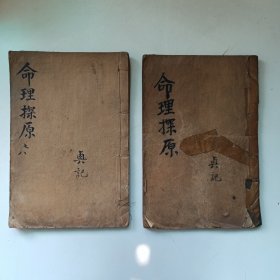 命理探原六
真記
命理探原
真記